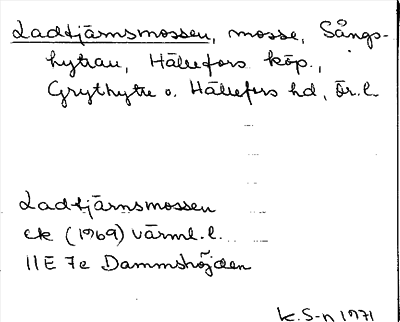 Ladtjärnsmossen, mosse, Sångs-
hyttan, Hällefors köp.,
Grythytte o. Hällefors hd, Ör. l.
Ladtjärnsmossen
ek (1969) Värml. l.
11E 7e Dammshöjden
K. S-n 1971